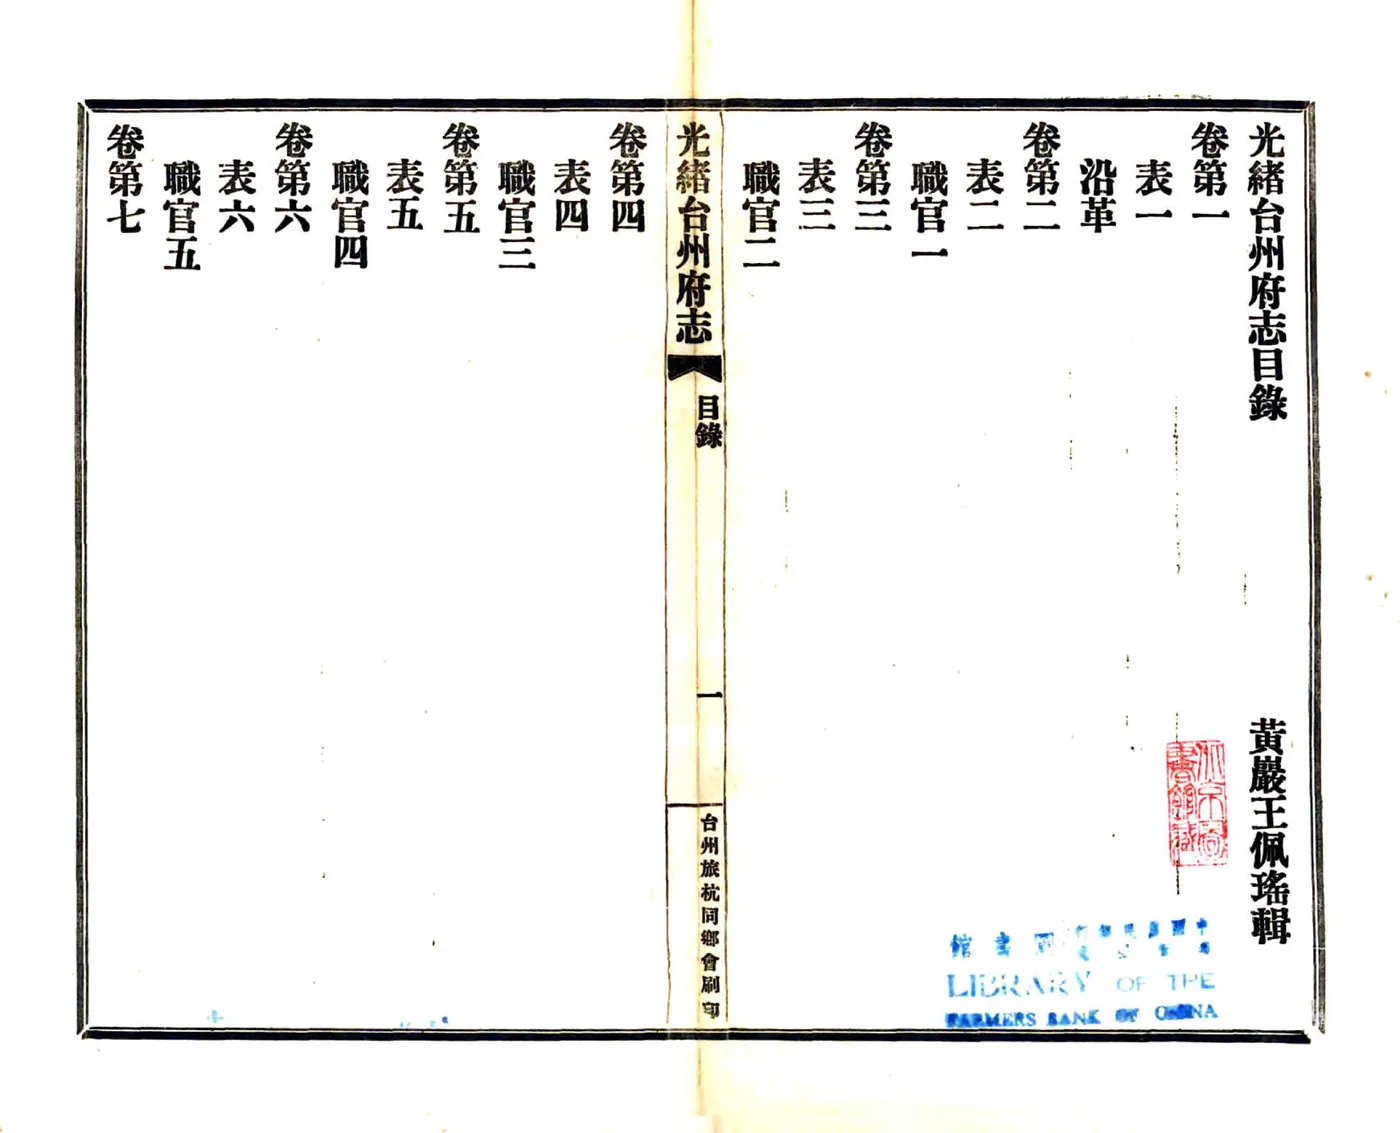 光緒台州府志目錄
黃巖王佩瑤輯
卷第一
表一
沿革
卷第二
表二
職官一
卷第三
表三
職官二
光緒台州府志
目錄
一
台州旅杭同鄉會刷印
卷第四
表四
職官三
卷第五
表五
職官四
卷第六
表六
職官五
卷第七
北京圖
書館藏
圖書館
LIBRARY OF THE
FARMERS BANK OF CHINA